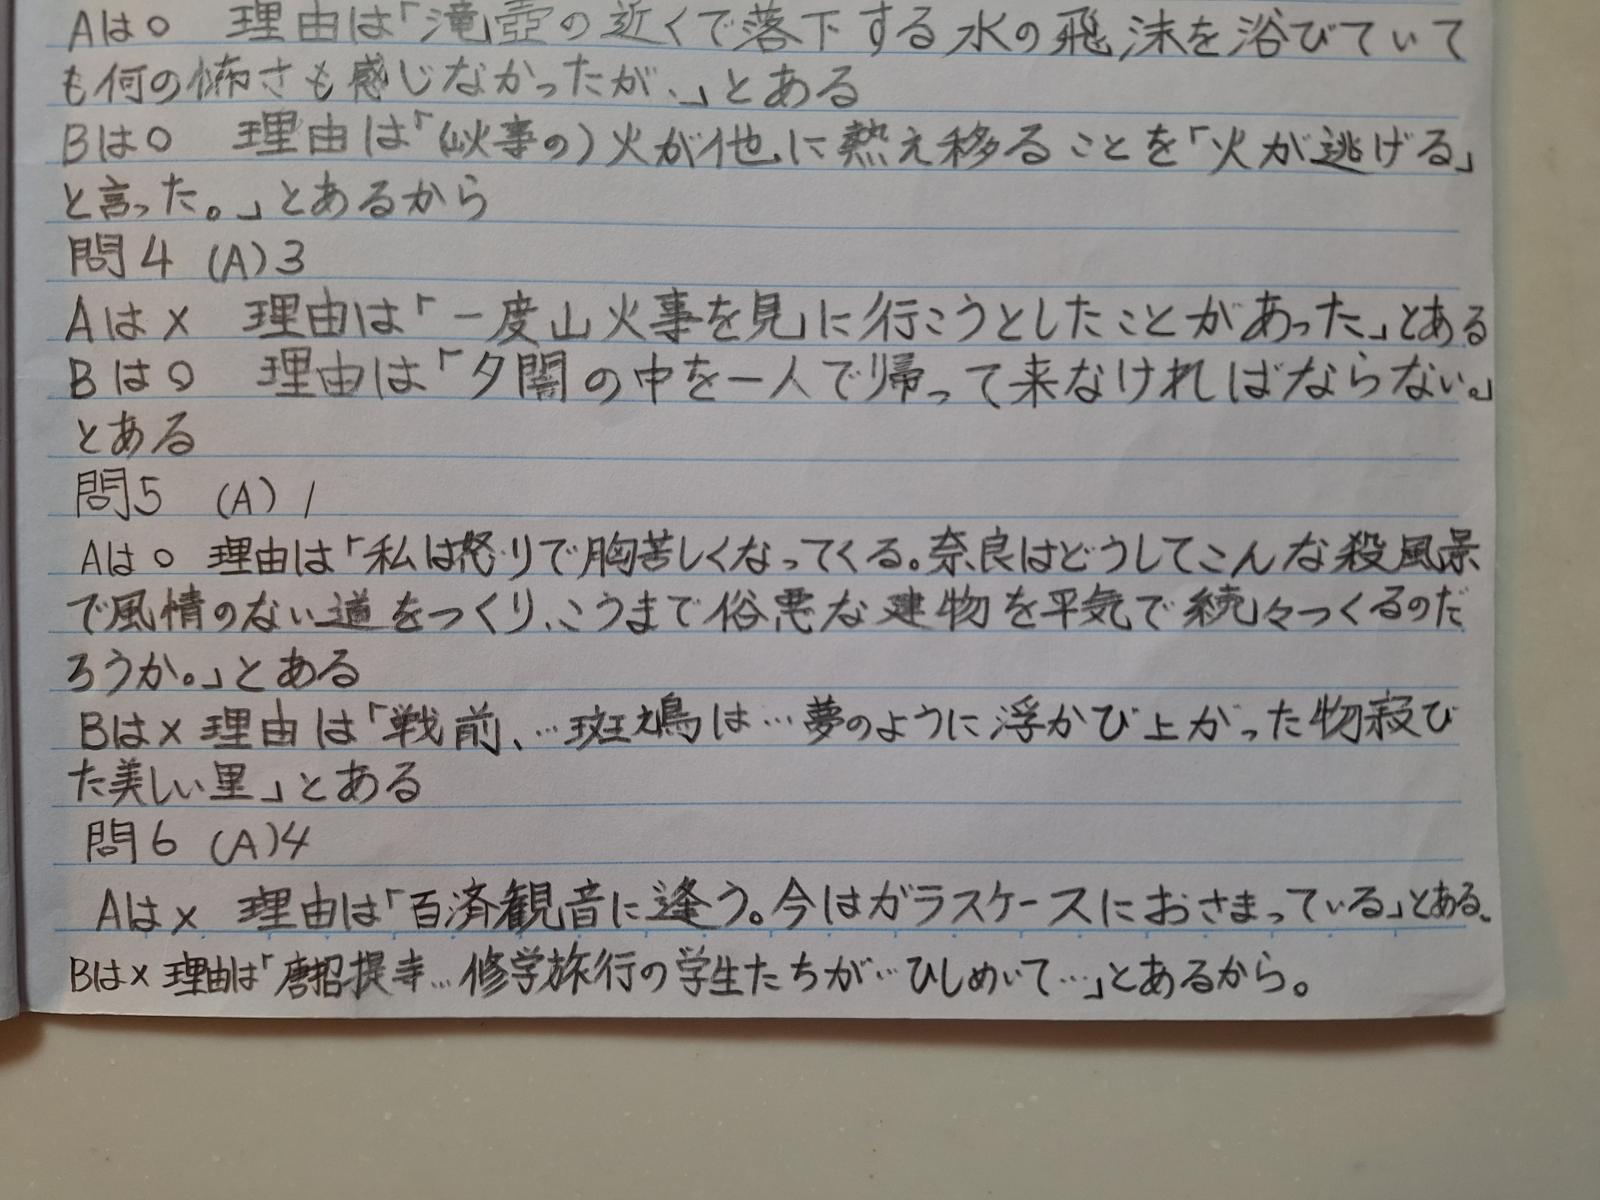 Aは○ 理由は「滝壺の近くで落下する水の飛沫を浴びていて
も何の怖さも感じなかったが、」とある
Bは○ 理由は「(山火事の)火が他に熱え移ることを「火が逃げる」
と言った。」とあるから
問4 (A)3
Aは× 理由は「一度山火事を見に行こうとしたことがあった」とある
Bは○ 理由は「夕闇の中を一人で帰って来なければならない。」
とある
問5 (A)1
Aは○ 理由は「私は怒りで胸苦しくなってくる。奈良はどうしてこんな殺風景
で風情のない道をつくり、こうまで俗悪な建物を平気で続々つくるのだ
ろうか。」とある
Bは× 理由は「戦前、…斑鳩は…夢のように浮かび上がった物寂び
た美しい里」とある
問6 (A)4
Aは× 理由は「百済観音に逢う。今はガラスケースにおさまっている」とある、
Bは× 理由は「唐招提寺…修学旅行の学生たちが…ひしめいて…」とあるから。